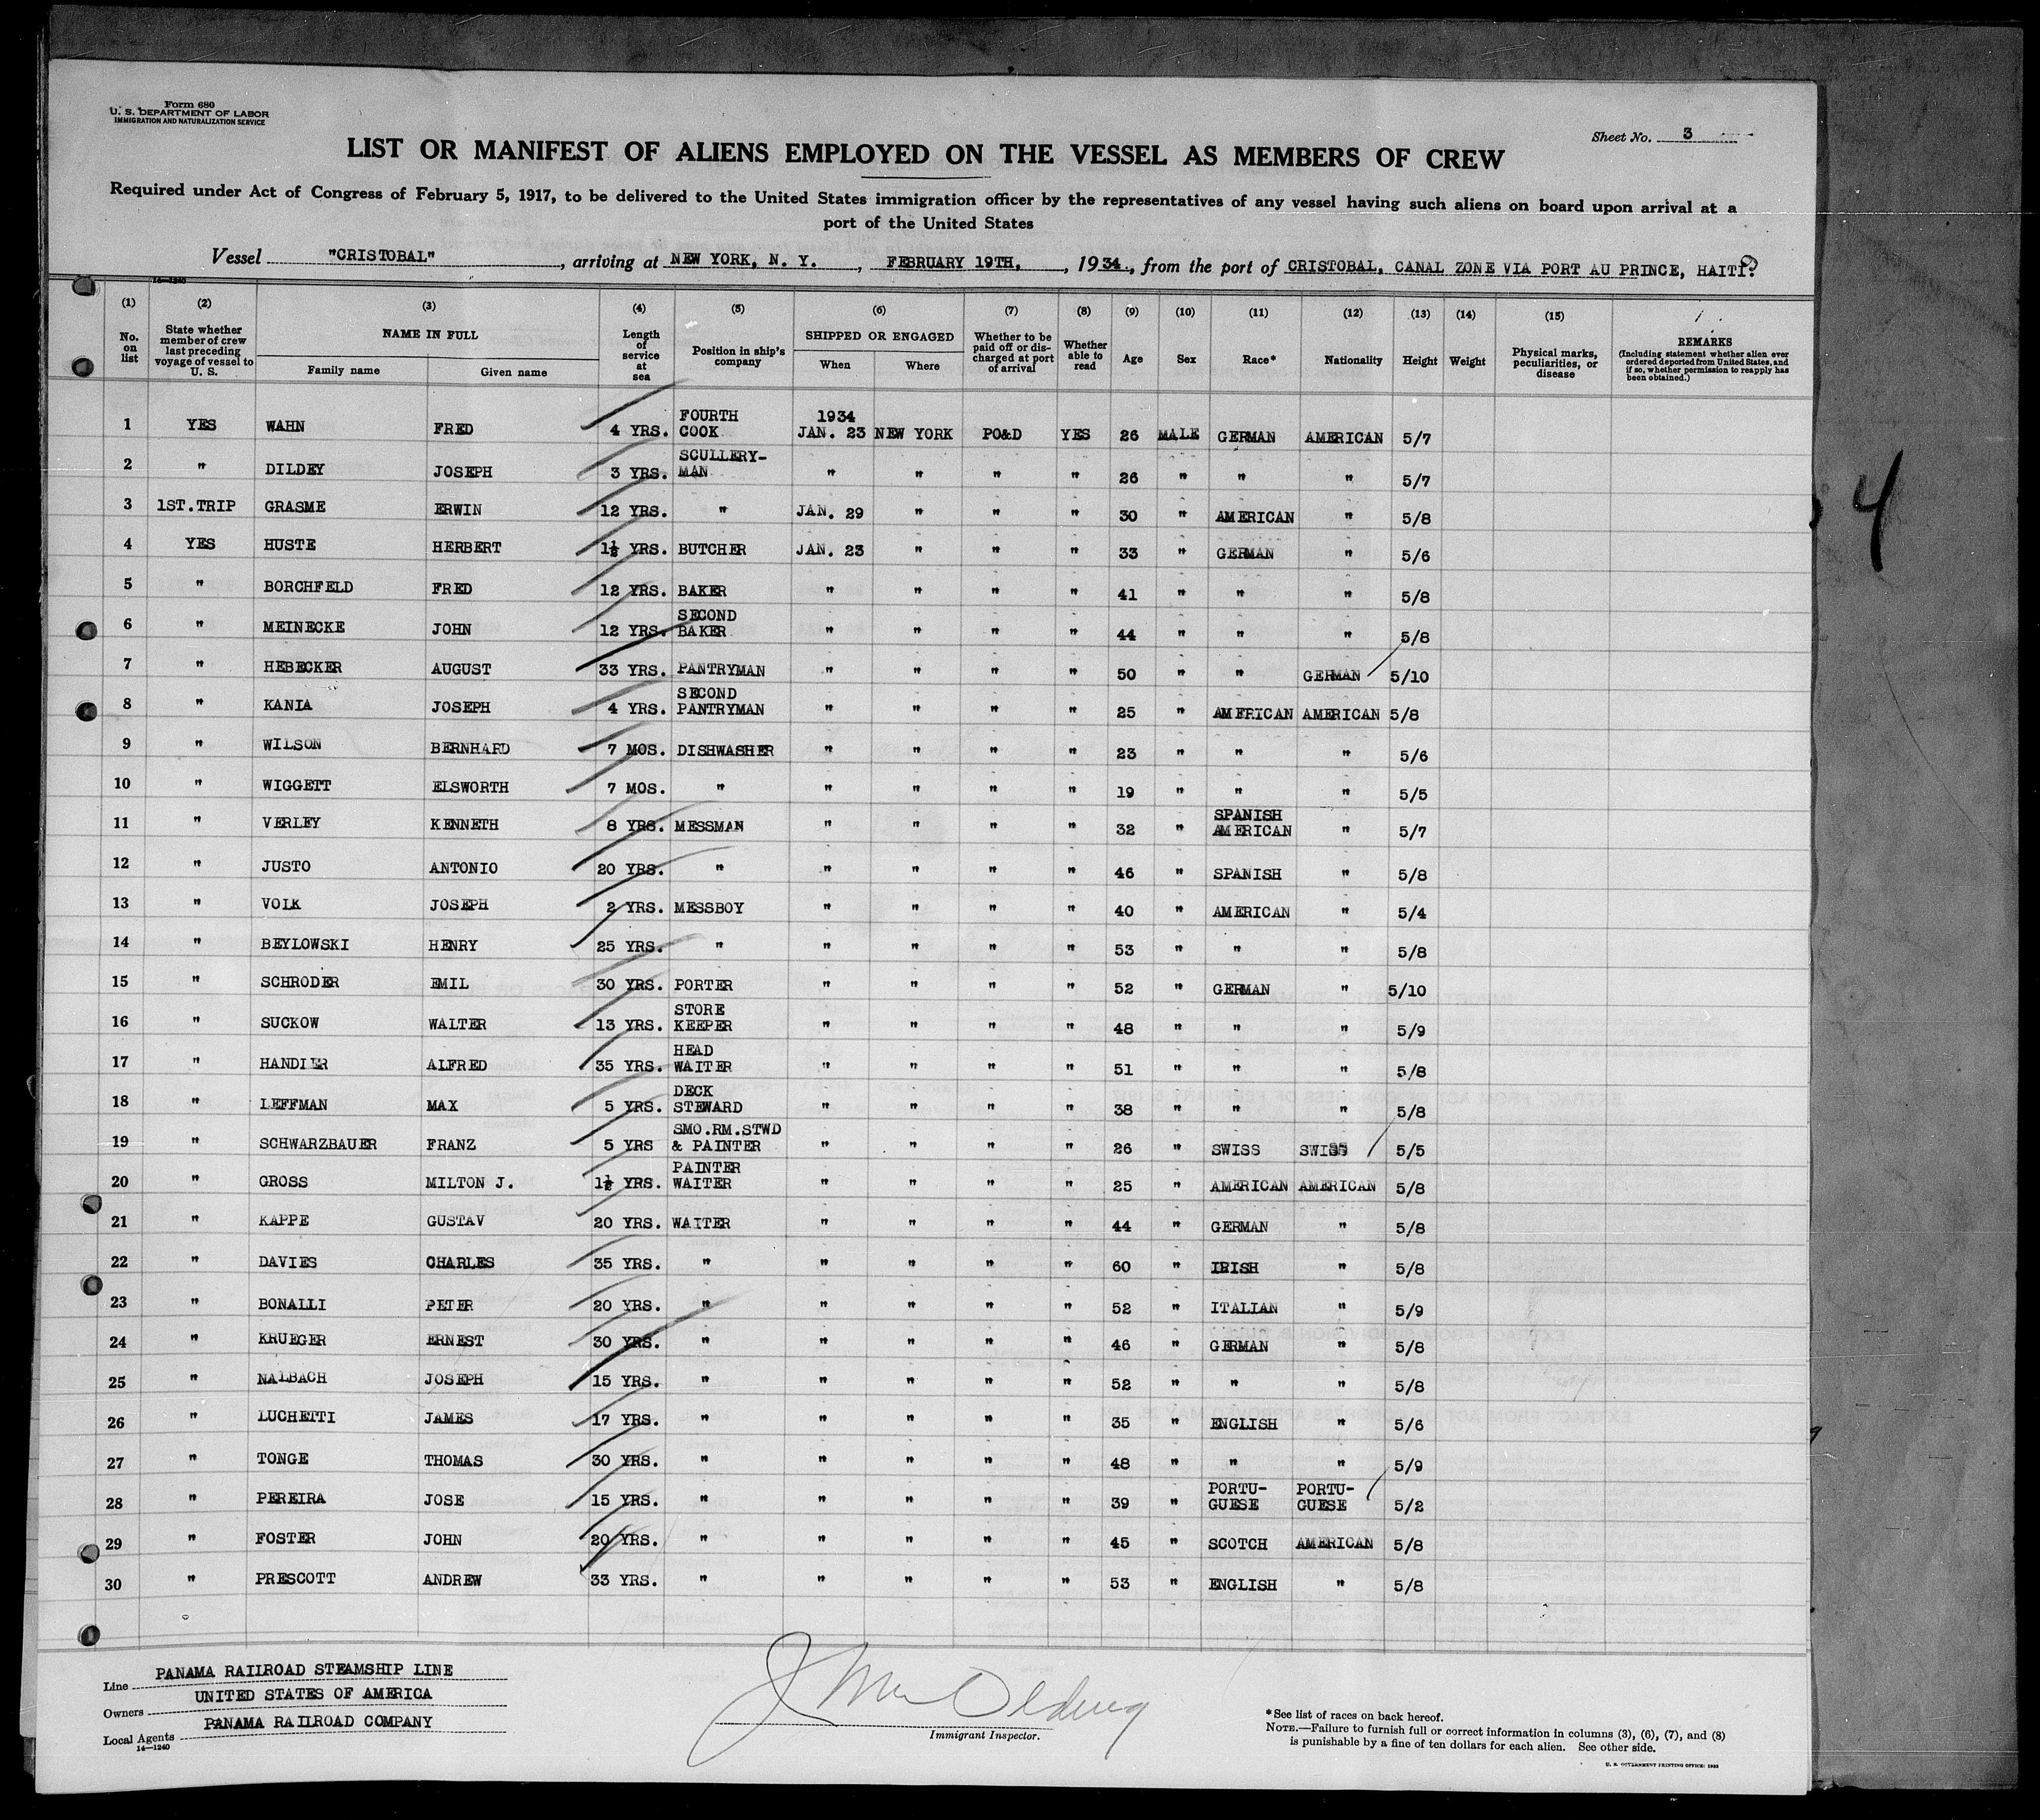 Form 680
U. S. DEPARTMENT OF LABOR
IMMIGRATION AND NATURALIZATION SERVICE
Sheet No. 3
LIST OR MANIFEST OF ALIENS EMPLOYED ON THE VESSEL AS MEMBERS OF CREW
Required under Act of Congress of February 5, 1917, to be delivered to the United States immigration officer by the representatives of any vessel having such aliens on board upon arrival at a
port of the United States
Vessel "CRISTOBAL", arriving at NEW YORK, N. Y., FEBRUARY 19TH, , 1934, from the port of CRISTOBAL, CANAL ZONE VIA PORT AU PRINCE, HAITI.
14—1240
(1) (2) (3) (4) (5) (6) (7) (8) (9) (10) (11) (12) (13) (14) (15)
No. on list State whether member of crew last preceding voyage of vessel to U. S. NAME IN FULL Family name Given name Length of service at sea Position in ship's company SHIPPED OR ENGAGED When Where Whether to be paid off or discharged at port of arrival Whether able to read Age Sex Race* Nationality Height Weight Physical marks, peculiarities, or disease REMARKS (Including statement whether alien ever ordered deported from United States, and if so, whether permission to reapply has been obtained.)
1 YES WAHN FRED 4 YRS. FOURTH COOK 1934 JAN. 23 NEW YORK PO&D YES 26 MALE GERMAN AMERICAN 5/7
2 " DILDEY JOSEPH 3 YRS. SCULLERY-MAN " " " " 26 " " " 5/7
3 1ST.TRIP GRASME ERWIN 12 YRS. " JAN. 29 " " " 30 " AMERICAN " 5/8
4 YES HUSTE HERBERT 1½ YRS. BUTCHER JAN. 23 " " " 33 " GERMAN " 5/6
5 " BORCHFELD FRED 12 YRS. BAKER " " " " 41 " " " 5/8
6 " MEINECKE JOHN 12 YRS. SECOND BAKER " " " " 44 " " " 5/8
7 " HEBECKER AUGUST 33 YRS. PANTRYMAN " " " " 50 " " GERMAN 5/10
8 " KANIA JOSEPH 4 YRS. SECOND PANTRYMAN " " " " 25 " AMERICAN AMERICAN 5/8
9 " WILSON BERNHARD 7 MOS. DISHWASHER " " " " 23 " " " 5/6
10 " WIGGETT ELSWORTH 7 MOS. " " " " " 19 " " " 5/5
11 " VERLEY KENNETH 8 YRS. MESSMAN " " " " 32 " SPANISH AMERICAN " 5/7
12 " JUSTO ANTONIO 20 YRS. " " " " " 46 " SPANISH " 5/8
13 " VOLK JOSEPH 2 YRS. MESSBOY " " " " 40 " AMERICAN " 5/4
14 " BEYLOWSKI HENRY 25 YRS. " " " " " 53 " " " 5/8
15 " SCHRODER EMIL 30 YRS. PORTER " " " " 52 " GERMAN " 5/10
16 " SUCKOW WALTER 13 YRS. STORE KEEPER " " " " 48 " " " 5/9
17 " HANDLER ALFRED 35 YRS. HEAD WAITER " " " " 51 " " " 5/8
18 " LEFFMAN MAX 5 YRS. DECK STEWARD " " " " 38 " " " 5/8
19 " SCHWARZBAUER FRANZ 5 YRS SMO.RM.STWD & PAINTER " " " " 26 " SWISS SWISS 5/5
20 " GROSS MILTON J. 1½ YRS. PAINTER WAITER " " " " 25 " AMERICAN AMERICAN 5/8
21 " KAPPE GUSTAV 20 YRS. WAITER " " " " 44 " GERMAN " 5/8
22 " DAVIES CHARLES 35 YRS. " " " " " 60 " IRISH " 5/8
23 " BONALLI PETER 20 YRS. " " " " " 52 " ITALIAN " 5/9
24 " KRUEGER ERNEST 30 YRS. " " " " " 46 " GERMAN " 5/8
25 " NALBACH JOSEPH 15 YRS. " " " " " 52 " " " 5/8
26 " LUCHETTI JAMES 17 YRS. " " " " " 35 " ENGLISH " 5/6
27 " TONGE THOMAS 30 YRS. " " " " " 48 " " " 5/9
28 " PEREIRA JOSE 15 YRS. " " " " " 39 " PORTU-GUESE PORTU-GUESE 5/2
29 " FOSTER JOHN 20 YRS. " " " " " 45 " SCOTCH AMERICAN 5/8
30 " PRESCOTT ANDREW 33 YRS. " " " " " 53 " ENGLISH " 5/8
4
Line PANAMA RAILROAD STEAMSHIP LINE
Owners UNITED STATES OF AMERICA
Local Agents PANAMA RAILROAD COMPANY
14—1240
Immigrant Inspector.
*See list of races on back hereof.
NOTE.—Failure to furnish full or correct information in columns (3), (6), (7), and (8)
is punishable by a fine of ten dollars for each alien. See other side.
U. S. GOVERNMENT PRINTING OFFICE: 1933